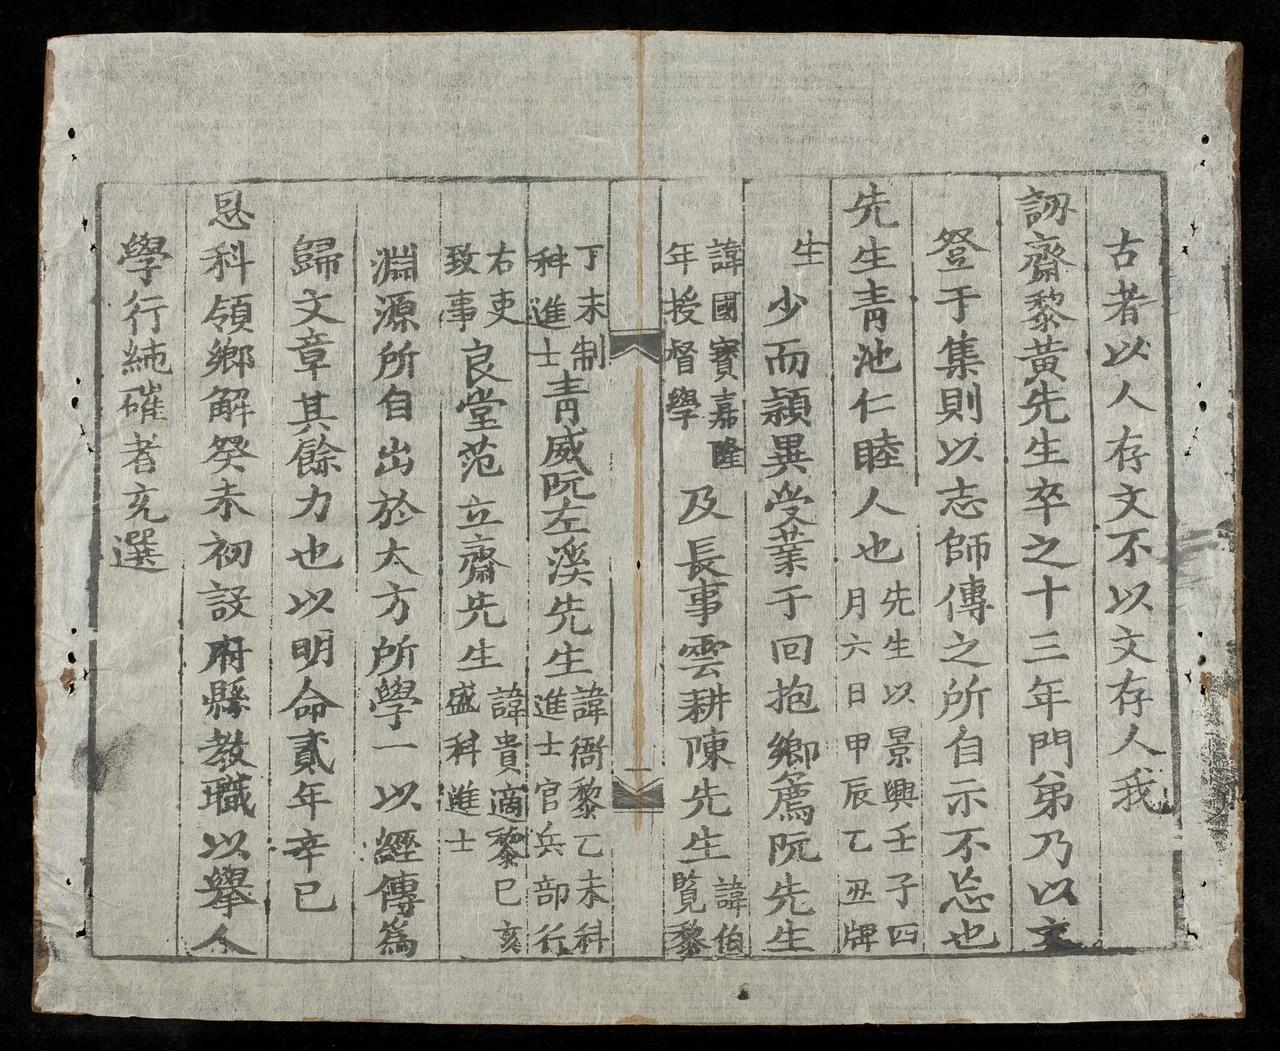 古者以人存文不以文存人我
訒齋黎黃先生卒之十三年門弟乃以文
登于集則以志師傳之所自示不忘也
先生青池仁睦人也先生以景興壬子四月六日甲辰乙丑牌
生少而頴異受業于回抱鄉薦阮先生
諱國寶嘉隆年授督學及長事雲耕陳先生諱伯覧黎
丁未制科進士青威阮左溪先生諱衙黎乙未科進士官兵部行
右吏致事良堂范立齋先生諱貴適黎己亥盛科進士
淵源所自出於大方所學一以經傳為
歸文章其餘力也以明命貳年辛巳
恩科領鄉解癸未初設府縣教職以擧人
學行純確者充選